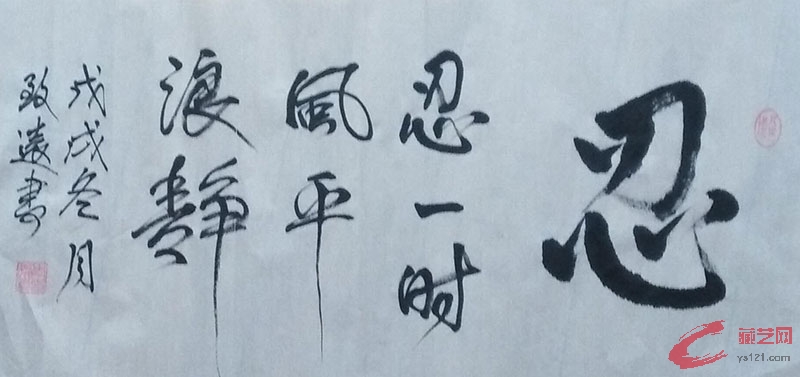 忍
忍一时
風平
浪静
戊戌冬月
致遠书
藏艺网
ys121.com